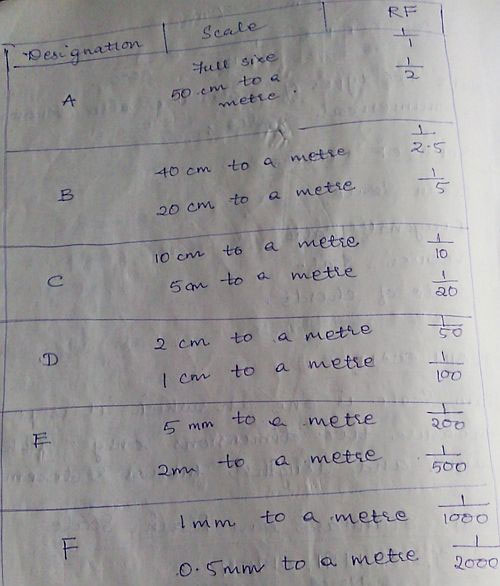 Designation | Scale | RF
Full size 1/1
A 50 cm to a metre. 1/2
B 40 cm to a metre 1/2.5
20 cm to a metre 1/5
C 10 cm to a metre 1/10
5 cm to a metre 1/20
D 2 cm to a metre 1/50
1 cm to a metre 1/100
E 5 mm to a metre 1/200
2m to a metre 1/500
F 1mm to a metre 1/1000
0.5mm to a metre 1/2000